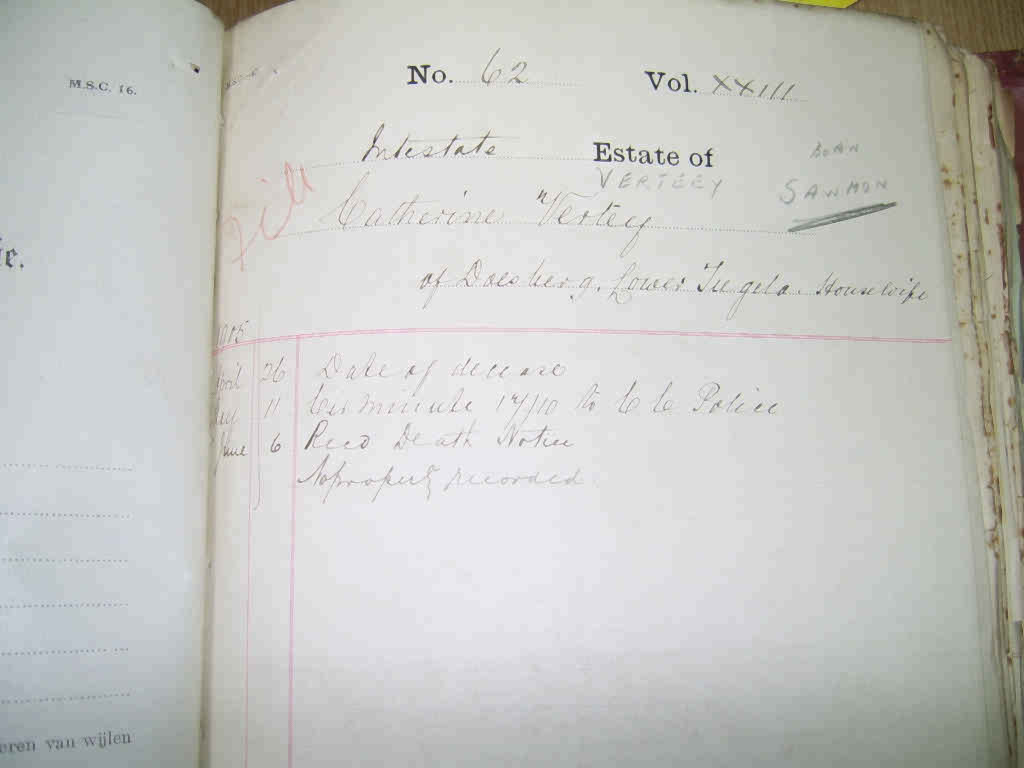 M.S.C. 16.
No. 62 Vol. XXIII
Intestate Estate of
BORN
VERTEEY SAWMON
Catherine Vertey
of Doesberg, Lower Tugela. Housewife
1905
April 26 Date of decease
11 minute 17/10 to C C Police
June 6 Recd Death Notice
No property recorded
eren van wijlen